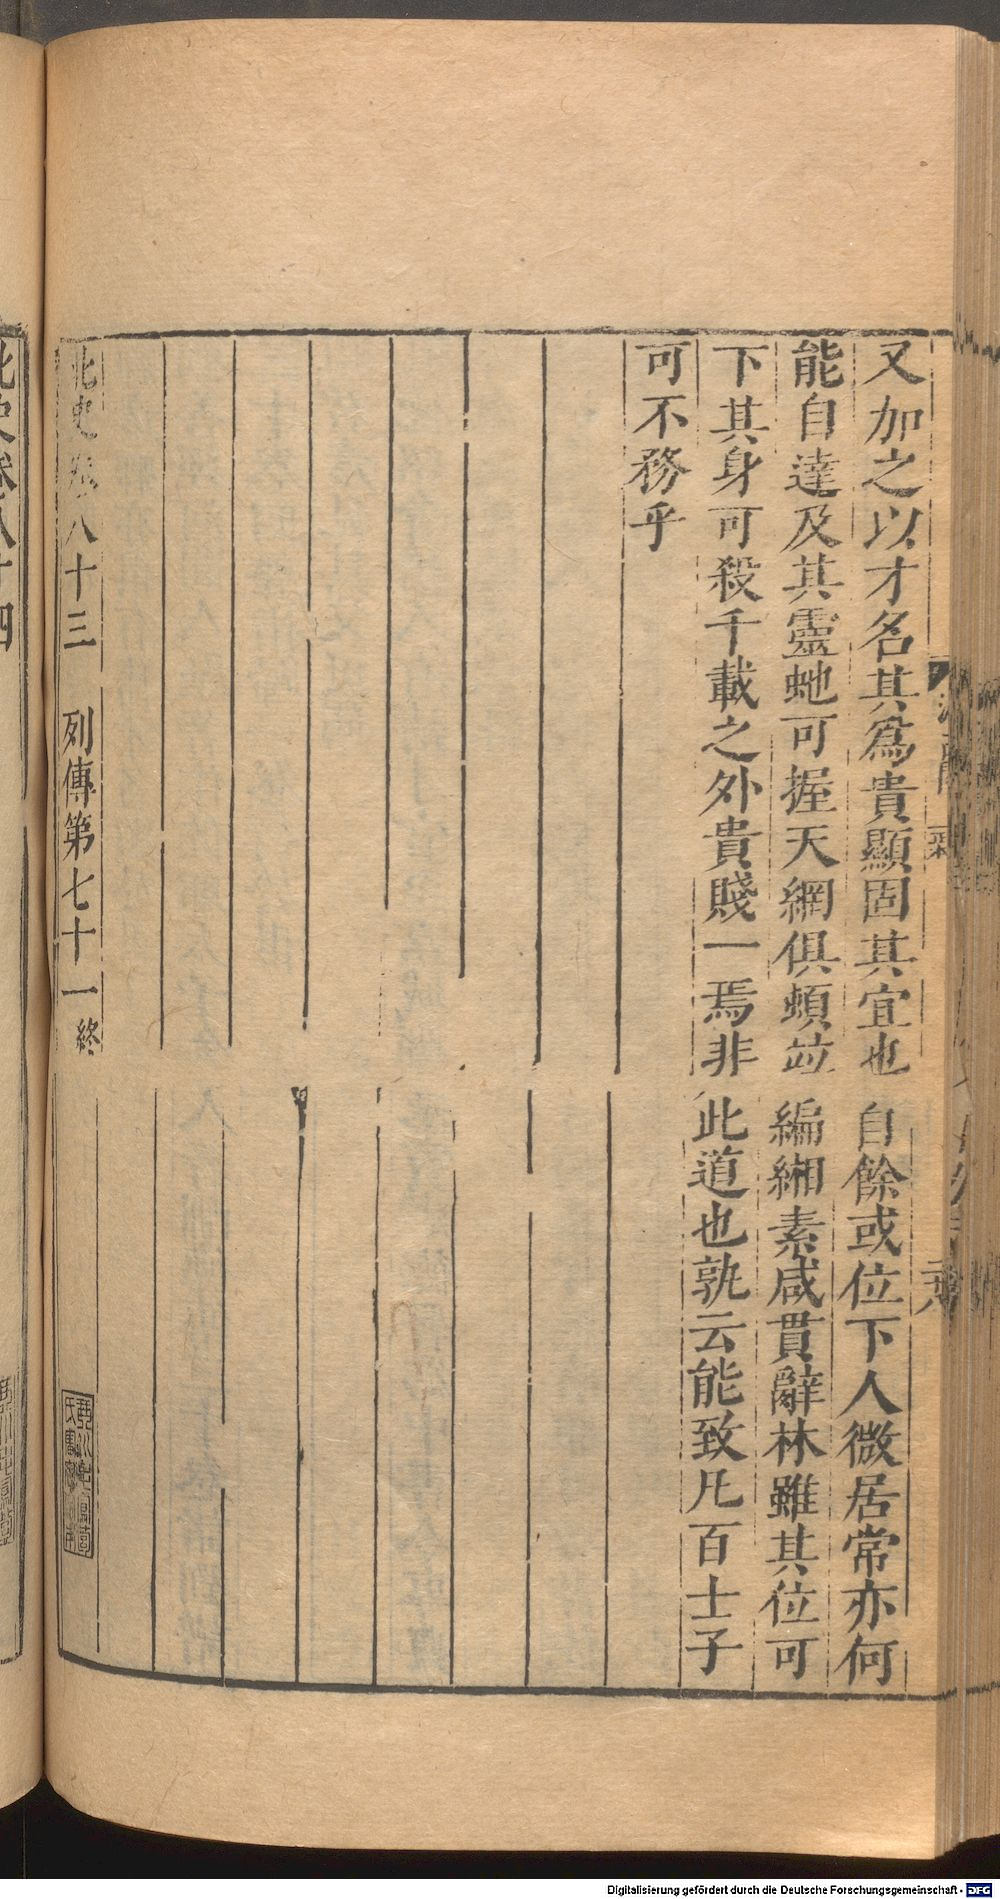 又加之以才名其爲貴顯固其宜也自餘或位下人微居常亦何
能自達及其靈虵可握天網俱頓竝編緗素咸貫辭林雖其位可
下其身可殺千載之外貴賤一焉非此道也孰云能致凡百士子
可不務乎
北史卷八十三 列傳第七十一終
北史卷八十四
Digitalisierung gefördert durch die Deutsche Forschungsgemeinschaft - DFG